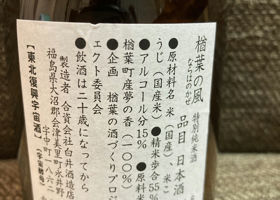 楢葉の風
ならはのかぜ
特別純米酒
品目 日本酒
●原材料名 米(国産)、米こ
うじ(国産米) ●精米歩合55%
●アルコール分15% ●原料米
楢葉町産夢の香(100%)
●企画 楢葉の酒づくりプロジ
ェクト委員会
●飲酒は二十歳になってから
製造者 合資会社白井酒造店
福島県大沼郡会津美里町永井野
字中町一八六二
【東北復興宇宙酒】